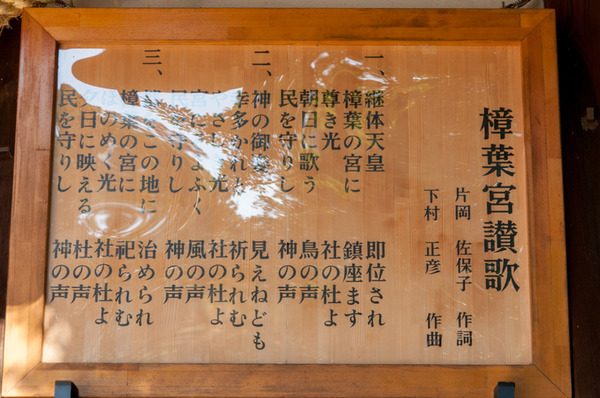 樟葉宮讃歌
片岡 佐保子 作詞
下村 正彦 作曲
一、継体天皇 即位され
樟葉の宮に 鎮座ます
尊き光 社の杜よ
朝日に歌う 鳥の声
民を守りし 神の声
二、神の御 見えねども
幸多かれと 祈られむ
やさし 光 社の杜よ
宮に よふく 風の声
民を守りし 神の声
三、 この地に 治められ
樟葉の宮に 祀られむ
ほのめく光 社の杜よ
夕日に映える 杜の声
民を守りし 神の声